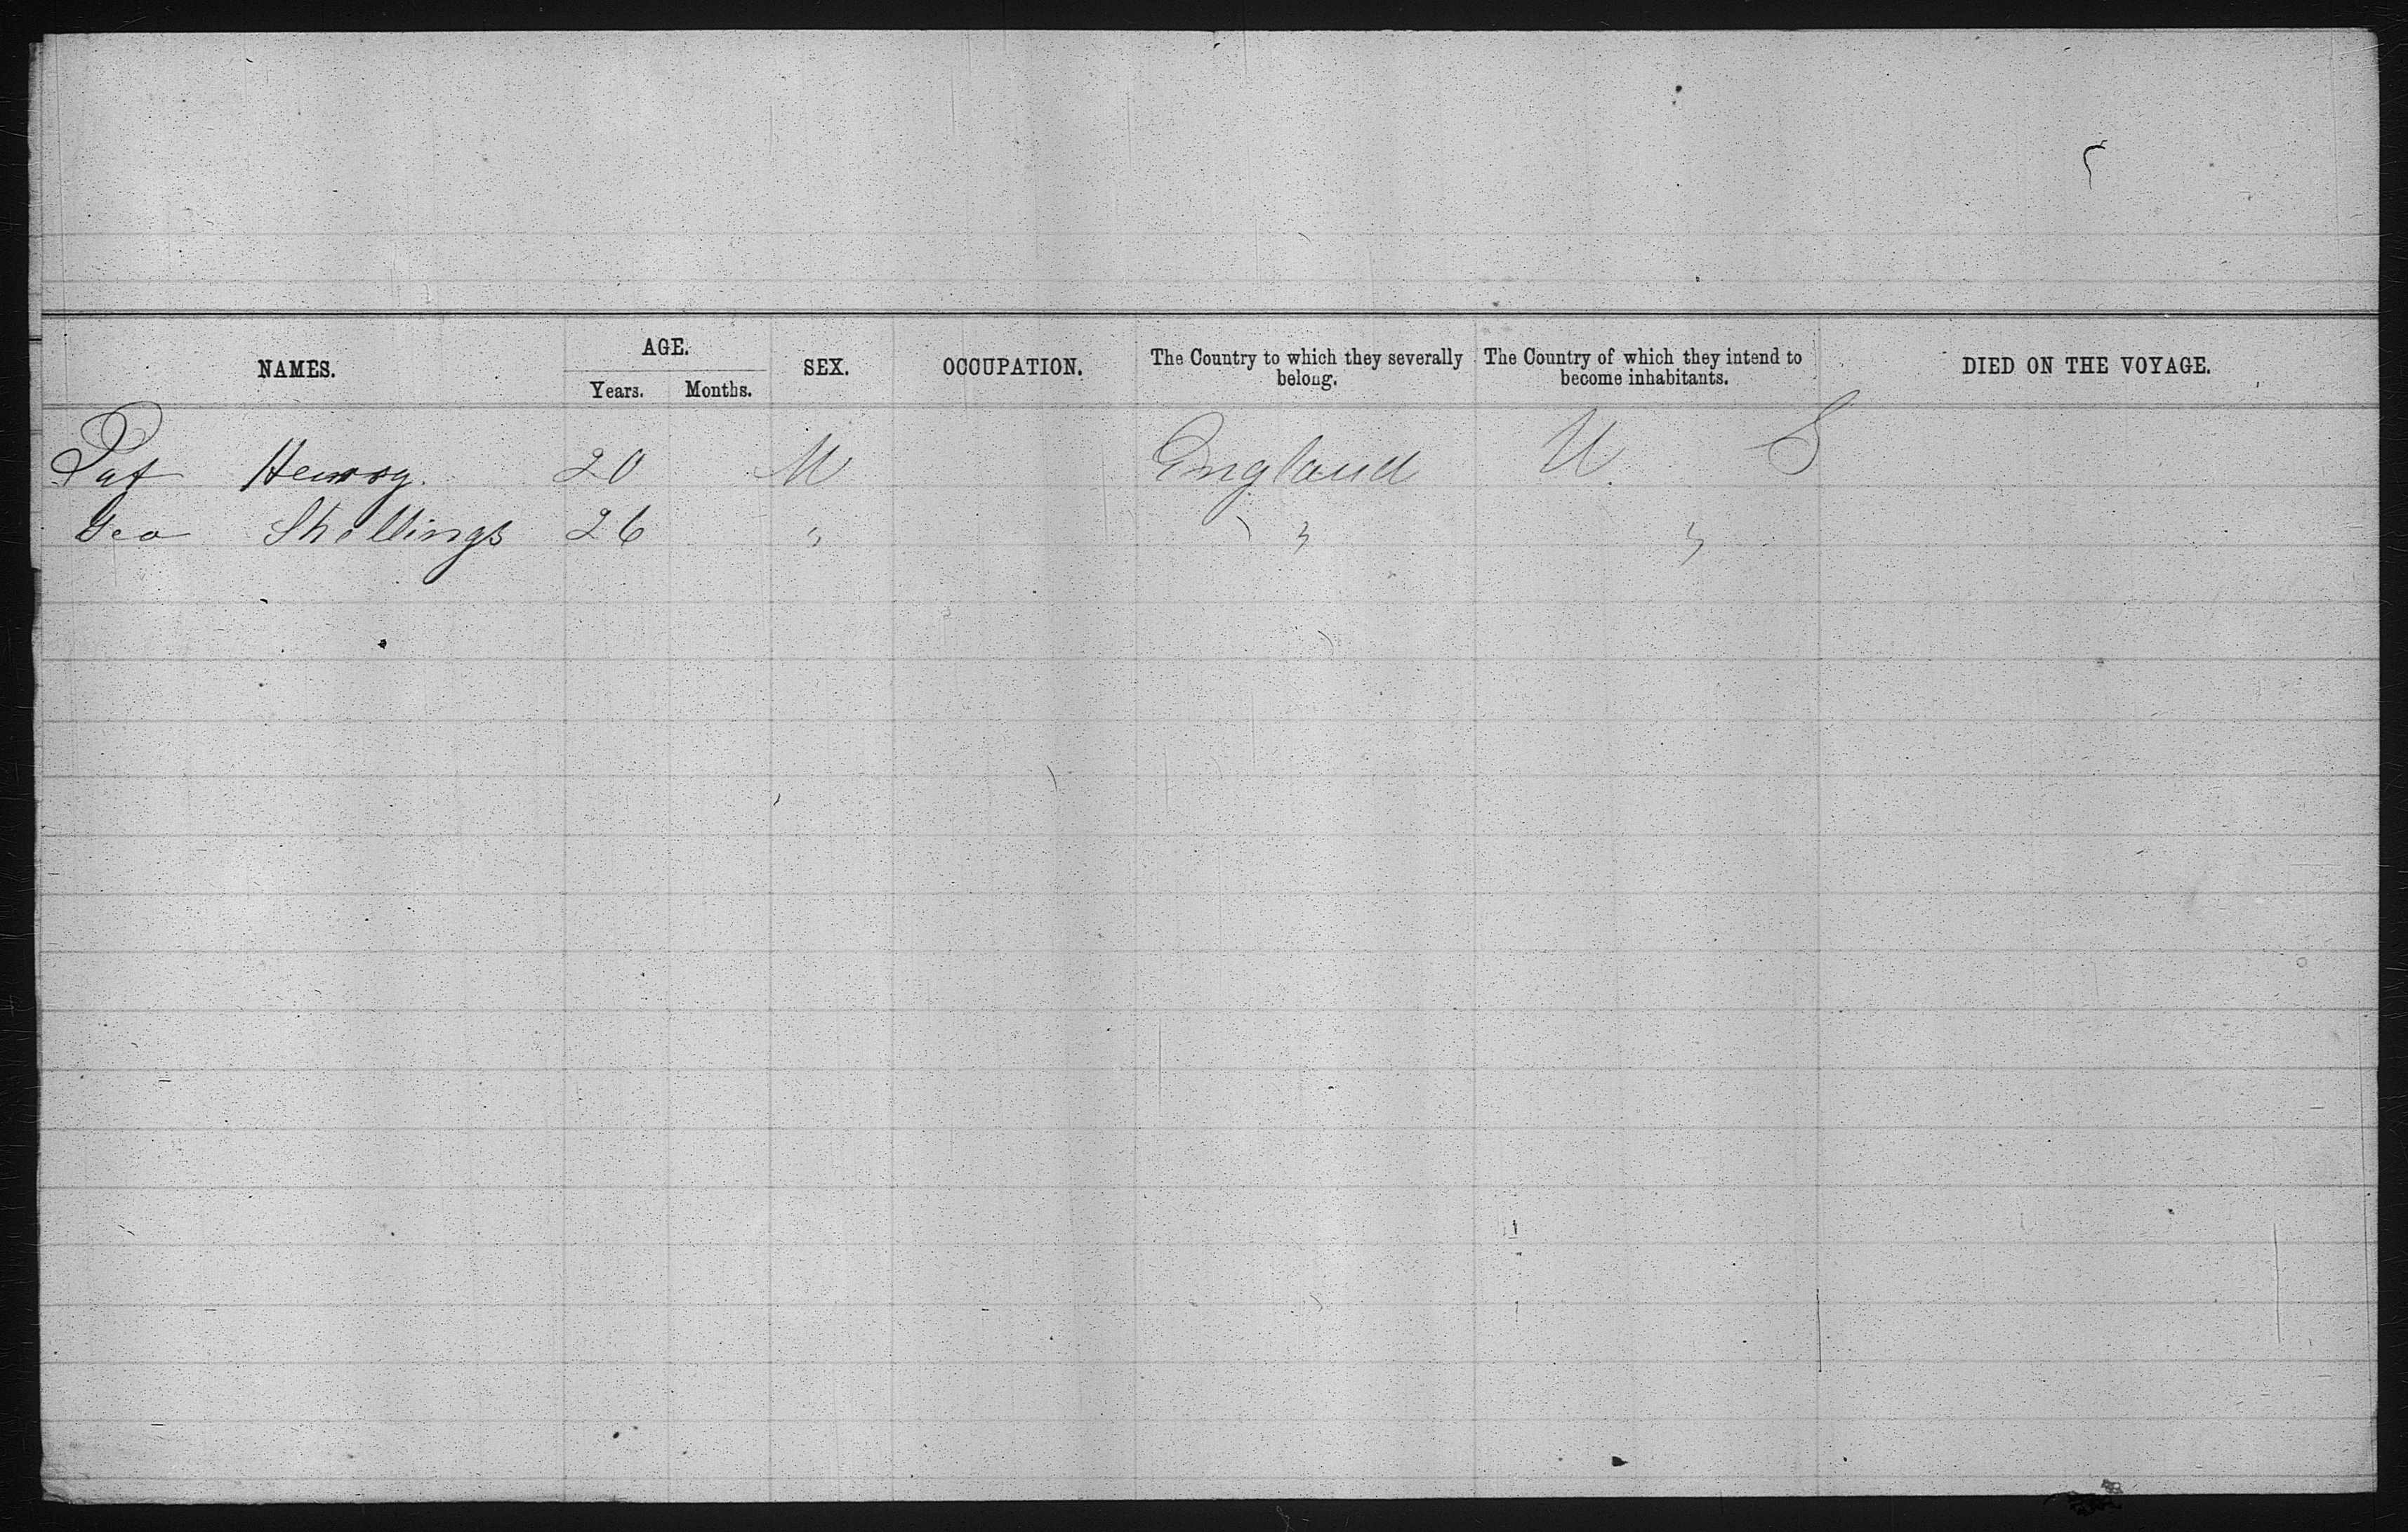 NAMES. AGE. SEX. OCCUPATION. The Country to which they severally belong. The Country of which they intend to become inhabitants. DIED ON THE VOYAGE.
Years. Months.
Pat Henry. 20 M England U. S
Geo Shillings 26 " " "